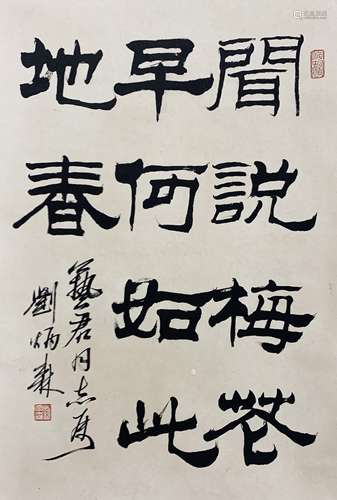 聞說梅花
早何如此
地春
藝君同志屬
劉炳森